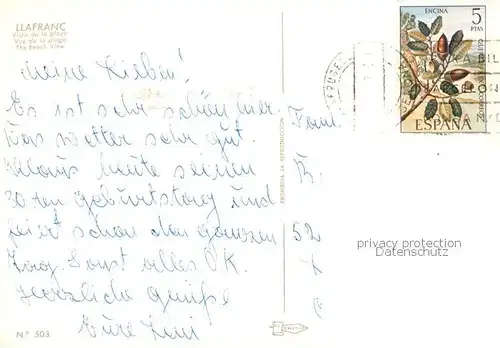 LLAFRANC
Vista de la playa
Vue de la plage
The Beach View
ENCINA
5
PTAS
ESPAÑA
Meine Lieben!
Es ist sehr schön hier.
Das Wetter sehr gut.
heute seinen
30 ten Geburtstag und
feiert schon den ganzen
Tag. Sonst alles OK.
Herzliche Grüße
Eure
PROHIBIDA LA REPRODUCCION
Fam
B
52
privacy protection
Datenschutz
N.º 503